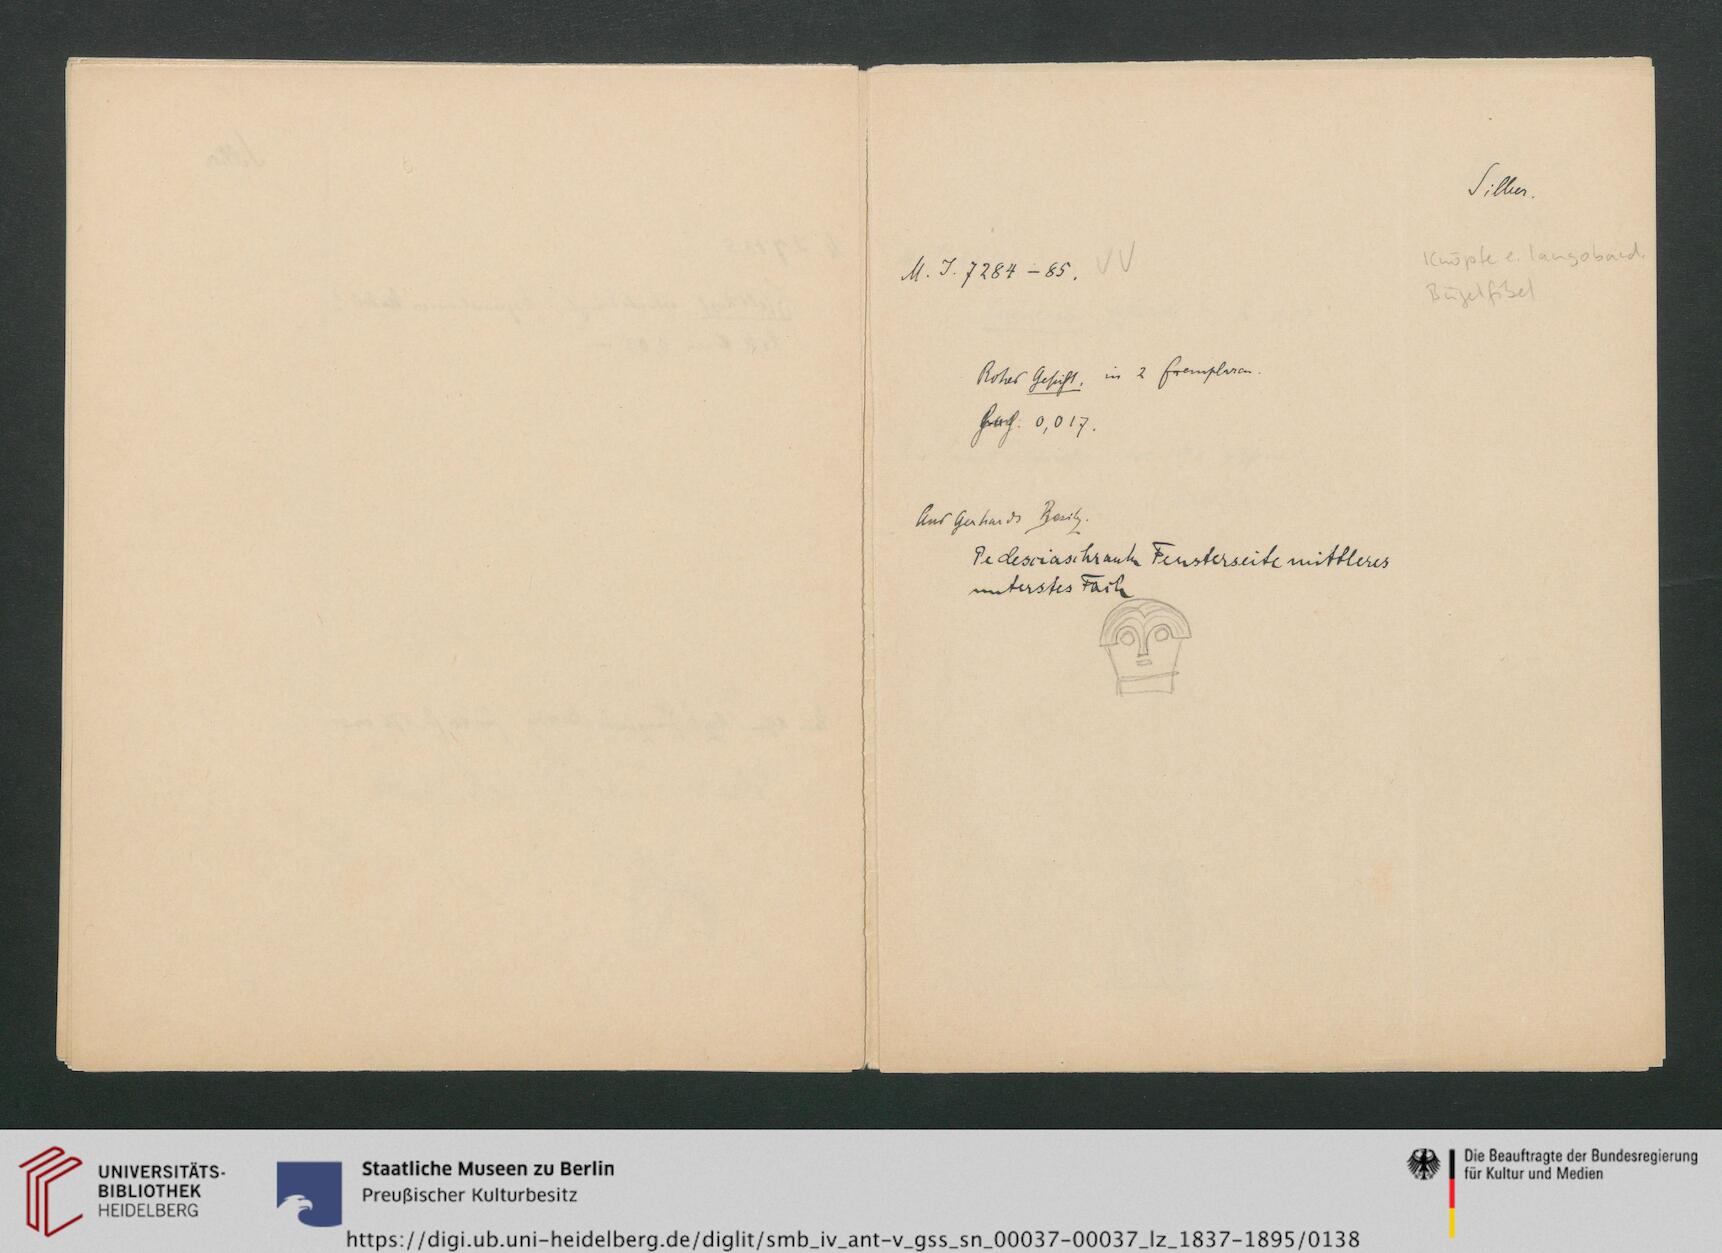 Silber.
M. I. 7284–85. VV
Knöpfe e. langobard.
Bügelfibel
Rohes Gesicht, in 2 Exemplaren.
0,017.
Aus Gerhards Besitz.
Pedesciaschrank Fensterseite mittleres
unterstes Fach
UNIVERSITÄTS-
BIBLIOTHEK
HEIDELBERG
Staatliche Museen zu Berlin
Preußischer Kulturbesitz
https://digi.ub.uni-heidelberg.de/diglit/smb_iv_ant-v_gss_sn_00037-00037_lz_1837-1895/0138
Die Beauftragte der Bundesregierung
für Kultur und Medien